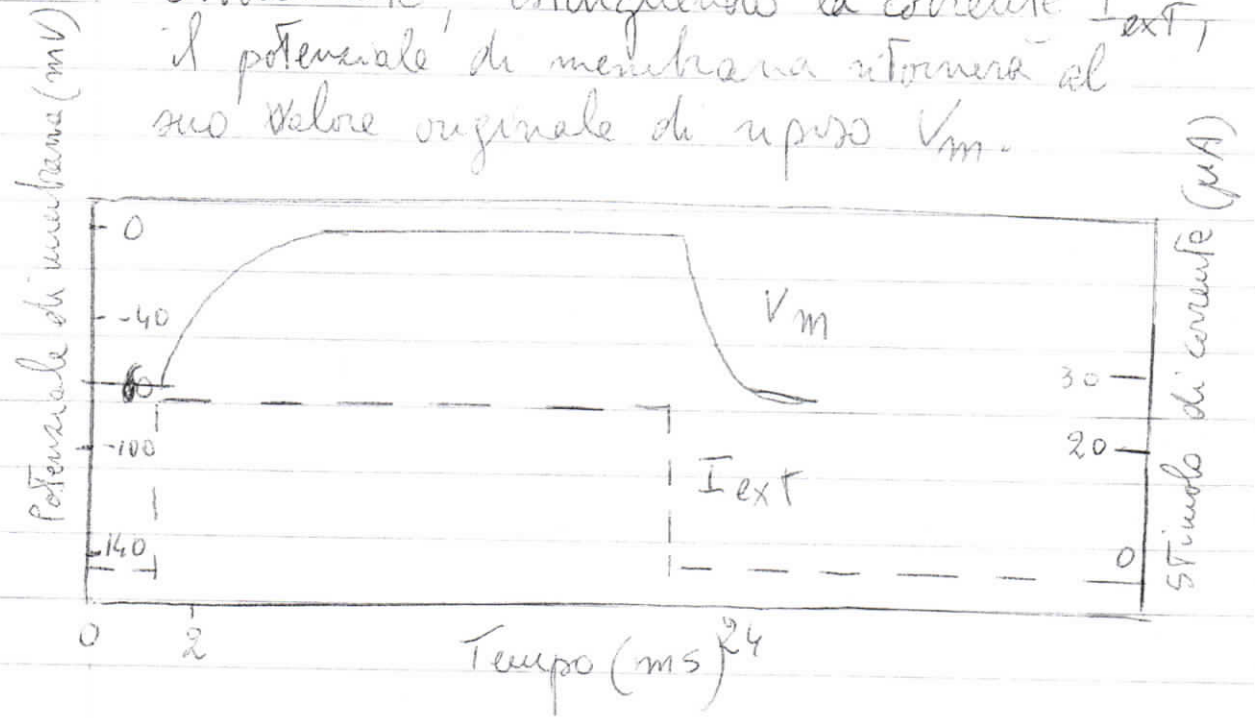 estinguendo la corrente I_ext,
il potenziale di membrana ritornerà al
suo valore originale di riposo Vm.
Potenziale di membrana (mV)
0
-40
-100
-140
Vm
I ext
30
20
0
Stimolo di corrente (μA)
0 2 24
Tempo (ms)